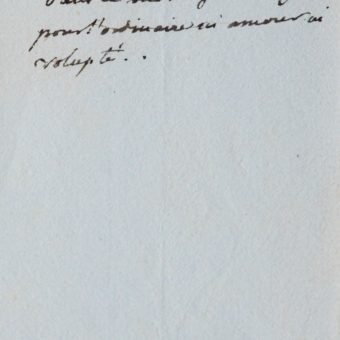 pour l'ordinaire ni amour ni
volupté. . .